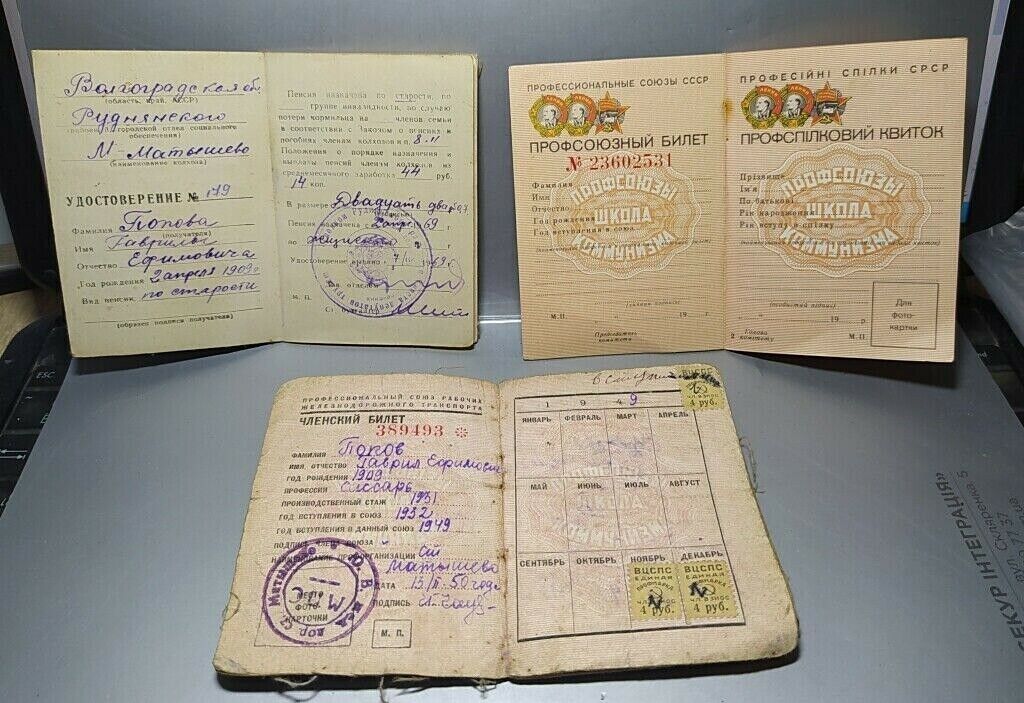 Волгоградская об.
(область, край, АССР)
Руднянского
(районного) городской отдел социального обеспечения)
М-Матышево
(наименование колхоза)
УДОСТОВЕРЕНИЕ № 179
Фамилия Попова
(получателя)
Имя Гаврилы
Отчество Ефимовича
Год рождения 2 апреля 1909 г
Вид пенсии по старости
(образец подписи получателя)
Пенсия назначена по старости, по
группе инвалидности, по случаю
потери кормильца на членов семьи
в соответствии с Законом о пенсиях и
пособиях членам колхозов и п. 8.11
Положения о порядке назначения и
выплаты пенсий членам колхозов из
среднемесячного заработка 44 руб.
14 коп.
В размере Двадцать два
Пенсия назначена с 2 апр 69 г
по пожизненно г
Удостоверение выдано 1969 г.
М. П.
Ст. бухгалтер
ПРОФЕССИОНАЛЬНЫЕ СОЮЗЫ СССР
ПРОФСОЮЗНЫЙ БИЛЕТ
№ 23602531
Фамилия
Имя
Отчество
Год рождения
Год вступления в союз
ПРОФСОЮЗЫ
ШКОЛА
КОММУНИЗМА
(личная подпись)
М.П. 19 г.
Председатель
комитета
ПРОФЕСІЙНІ СПІЛКИ СРСР
ПРОФСПІЛКОВИЙ КВИТОК
Прізвище
Ім'я
По батькові
Рік народження
Рік вступу в спілку
ПРОФСОЮЗЫ
ШКОЛА
КОММУНИЗМА
(особистий підпис)
19 р.
2 Голова
комітету
М.П.
Для
фото-
картки
ПРОФЕССИОНАЛЬНЫЙ СОЮЗ РАБОЧИХ
ЖЕЛЕЗНОДОРОЖНОГО ТРАНСПОРТА
ЧЛЕНСКИЙ БИЛЕТ
389493
ФАМИЛИЯ Попов
ИМЯ, ОТЧЕСТВО Гаврил Ефимович
ГОД РОЖДЕНИЯ 1909
ПРОФЕССИЯ Слесарь
ПРОИЗВОДСТВЕННЫЙ СТАЖ 1931
ГОД ВСТУПЛЕНИЯ В СОЮЗ 1932
ГОД ВСТУПЛЕНИЯ В ДАННЫЙ СОЮЗ 1949
ПОДПИСЬ ЧЛЕНА СОЮЗА
НАИМЕНОВАНИЕ ПРОФОРГАНИЗАЦИИ ст
Матышево
ДАТА 50 года
ПОДПИСЬ
МЕСТО
ФОТО-
КАРТОЧКИ
М. П.
Ст. Матышево Ю. В. ж д
МПС
ВЦСПС
4 руб.
1 9 4 9
ЯНВАРЬ ФЕВРАЛЬ МАРТ АПРЕЛЬ
МАЙ ИЮНЬ ИЮЛЬ АВГУСТ
СЕНТЯБРЬ ОКТЯБРЬ НОЯБРЬ ДЕКАБРЬ
ВЦСПС
ЕДИНАЯ
ПРОФМАРКА
ЧЛ. ВЗНОС
4 руб.
ВЦСПС
ЕДИНАЯ
ПРОФМАРКА
ЧЛ. ВЗНОС
4 руб.
ESC
СЕКУР ІНТЕГРАЦІЯ»
Скляренка, 5